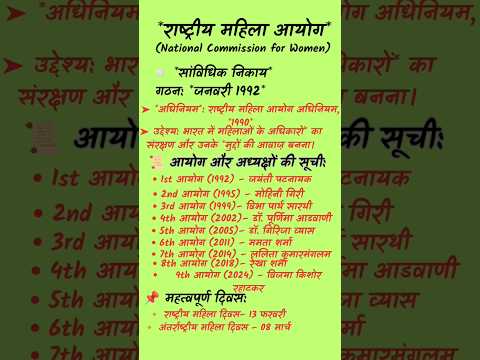 *राष्ट्रीय महिला आयोग*
(National Commission for Women)
*सांविधिक निकाय*
गठन: *जनवरी 1992*
➤ *अधिनियम*: राष्ट्रीय महिला आयोग अधिनियम, *1990*
➤ उद्देश्य: भारत में महिलाओं के अधिकारों* का संरक्षण और उनके *मुद्दों की आवाज़ बनना।
📜 आयोग और अध्यक्षों की सूची:
• 1st आयोग (1992) - जयंती पटनायक
• 2nd आयोग (1995) - मोहिनी गिरी
• 3rd आयोग (1999)- विभा पार्थ सारथी
• 4th आयोग (2002)- डॉ. पूर्णिमा आडवाणी
• 5th आयोग (2005)- डॉ. गिरिजा व्यास
• 6th आयोग (2011) - ममता शर्मा
• 7th आयोग (2014) - ललिता कुमारमंगलम
• 8th आयोग (2018)- रेखा शर्मा
• 9th आयोग (2024) - विजया किशोर
रहाटकर
📌 महत्वपूर्ण दिवस:
• राष्ट्रीय महिला दिवस- 13 फरवरी
• अंतर्राष्ट्रीय महिला दिवस - 08 मार्च